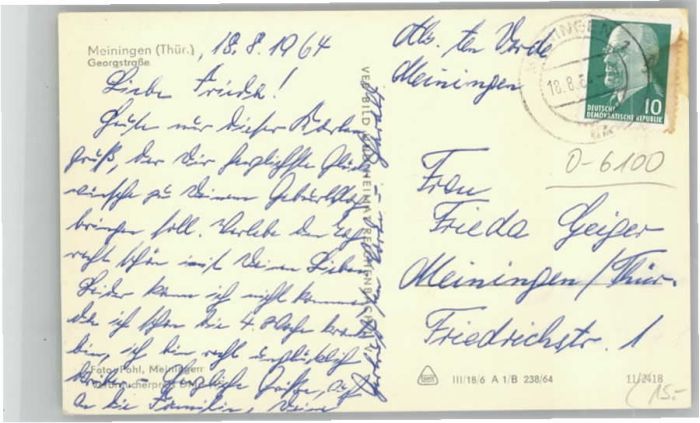 Meiningen (Thür.)
Georgstraße
, 18.8.1964
Liebe Frieda!
Heute nur dieser Karten
gruß, der Dir herzlichste Glück
wünsche zu Deinem Geburtstag
bringen soll. Verlebe den Tag
recht schön mit Deinen Lieben
Leider kann ich nicht kommen
da ich schon die 4. Woche krank
bin, ich bin recht unglücklich
Herzliche Grüße, auch
an die Familie, Deine
Foto: Pohl, Meiningen
VEB BILD UND HEIMAT REICHENBACH
Abs.
Meiningen
18.8.64
DEUTSCHE
DEMOKRATISCHE REPUBLIK
10
0-6100
Frau
Frieda Geiger
Meiningen/Thür.
Friedrichstr. 1
III/18/6 A 1/B 238/64
11/2418
15.-